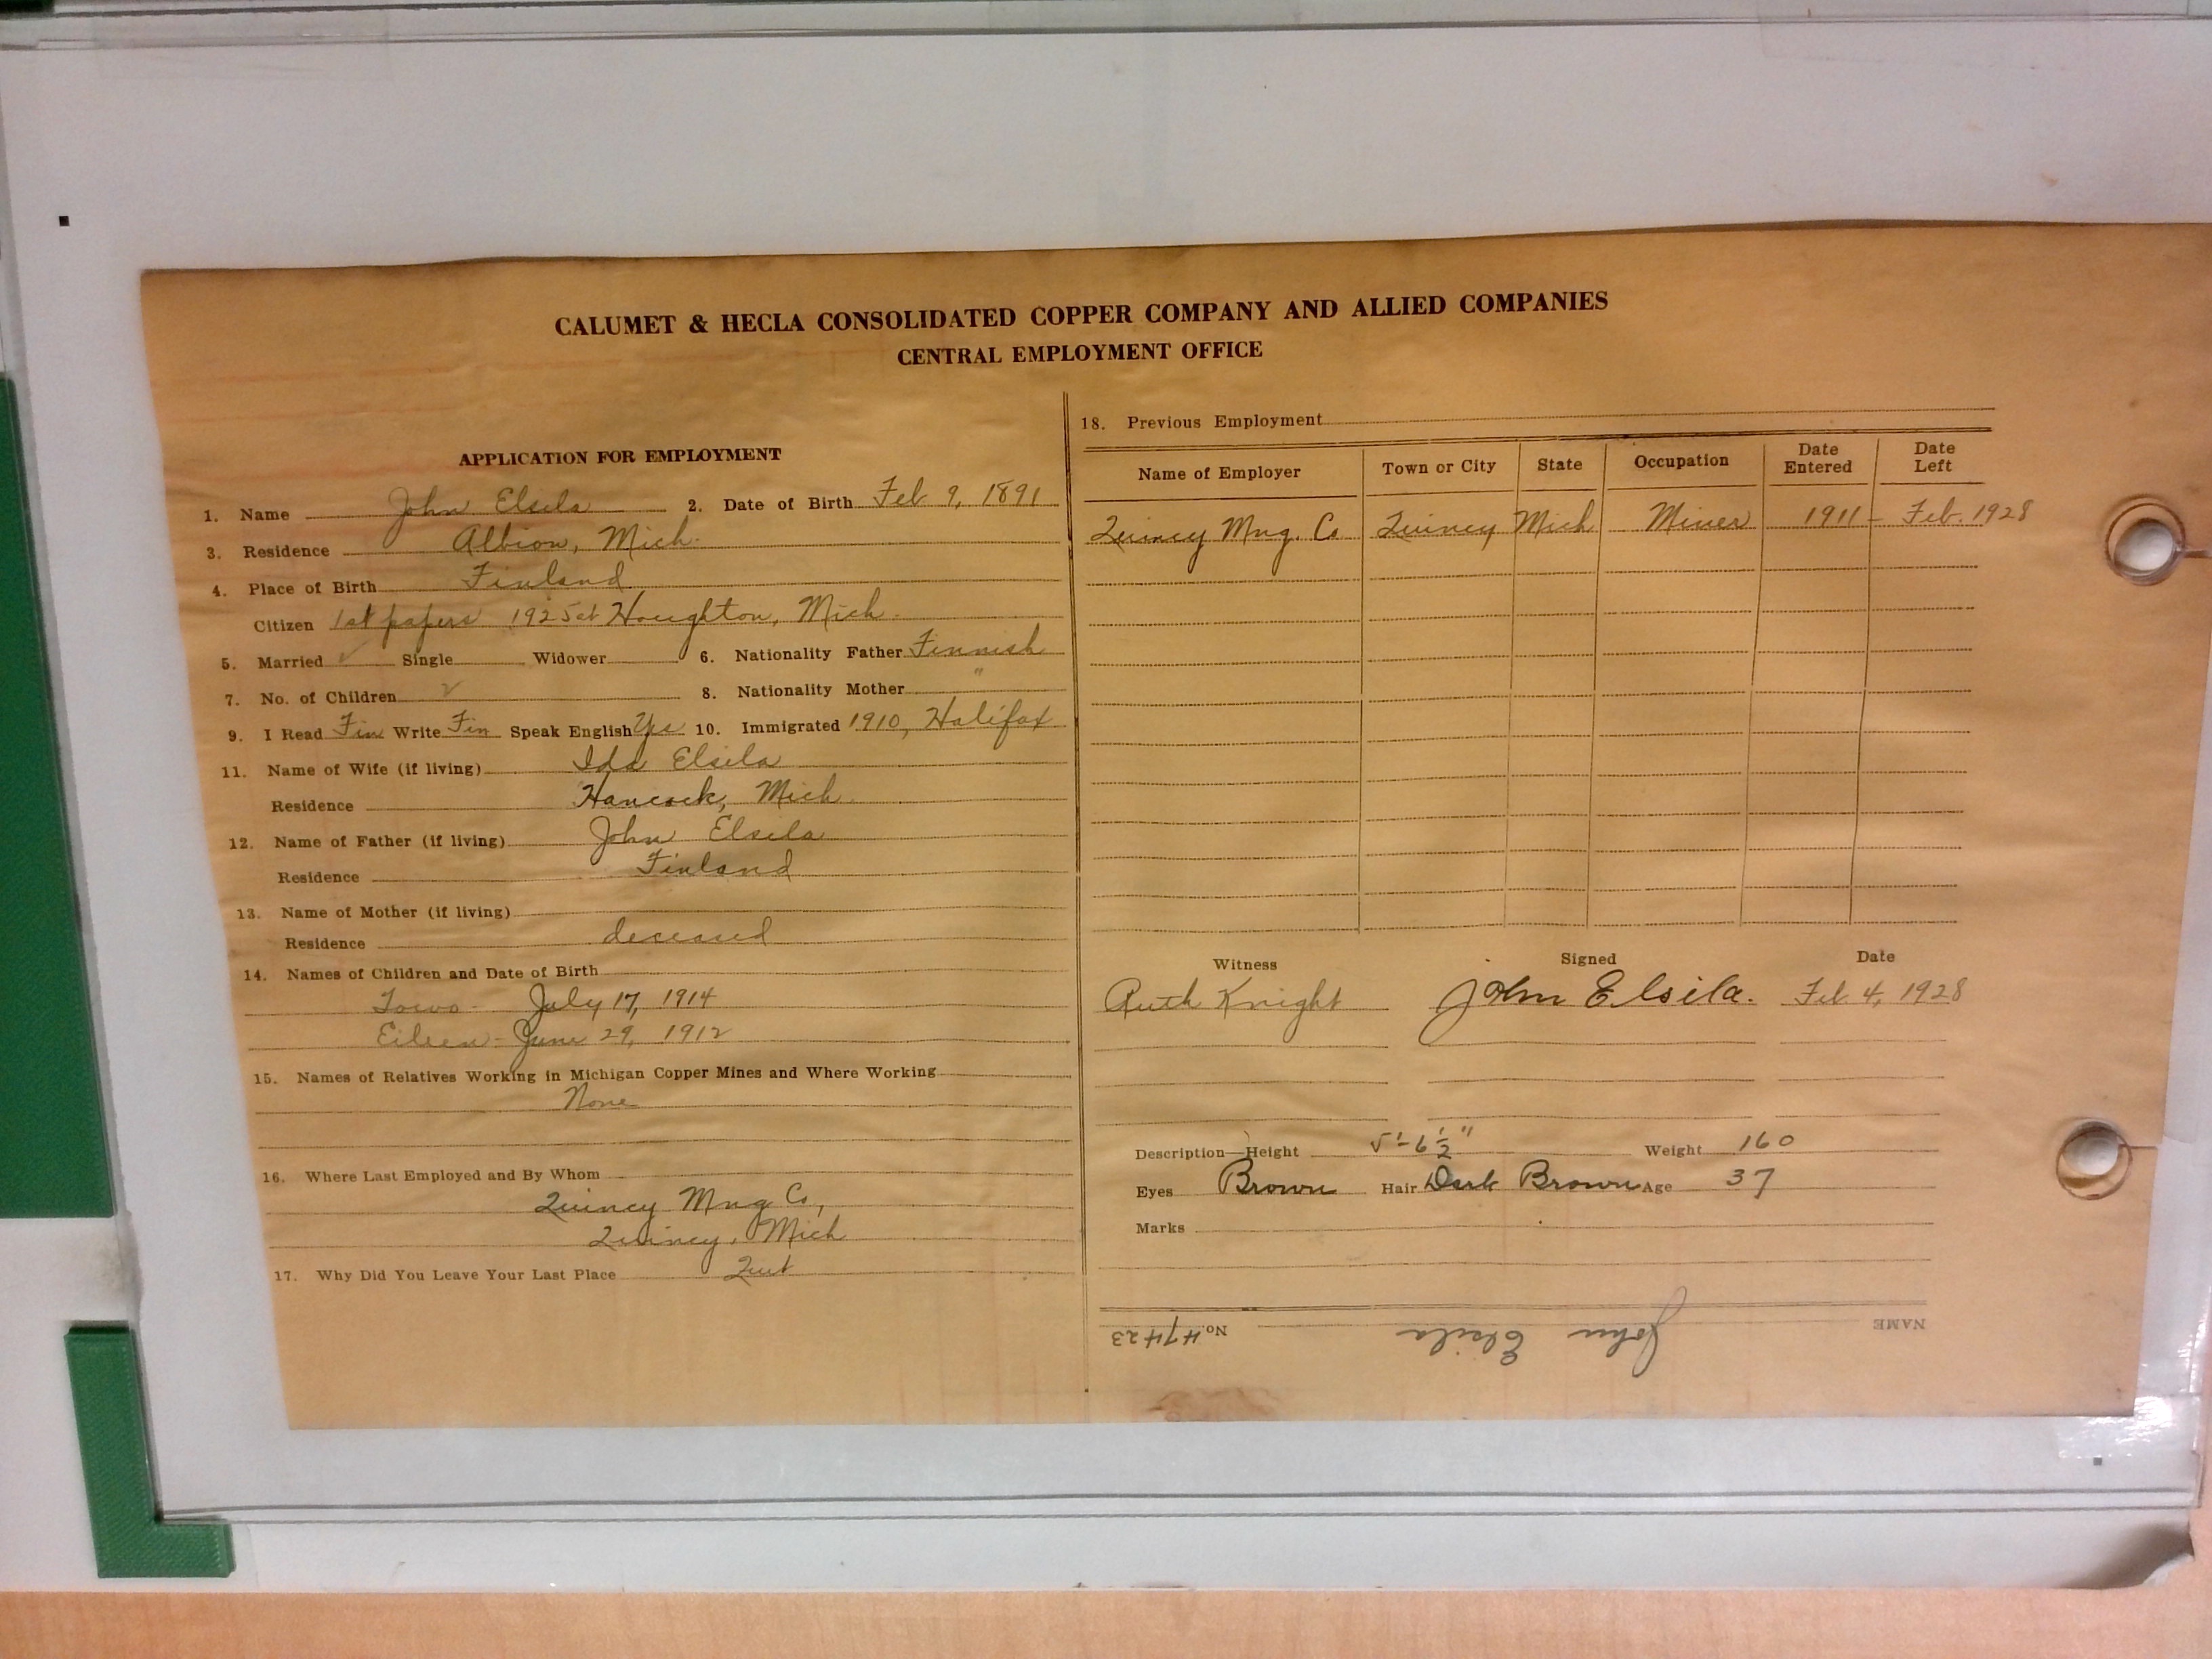 CALUMET & HECLA CONSOLIDATED COPPER COMPANY AND ALLIED COMPANIES
CENTRAL EMPLOYMENT OFFICE
APPLICATION FOR EMPLOYMENT
1. Name John Elsila 2. Date of Birth Feb 9, 1891
3. Residence Albion, Mich.
4. Place of Birth Finland
Citizen 1st papers 1925 at Houghton, Mich.
5. Married ✓ Single Widower 6. Nationality Father Finnish
7. No. of Children 2 8. Nationality Mother "
9. I Read Fin Write Fin Speak English Yes 10. Immigrated 1910, Halifax
11. Name of Wife (if living) Ida Elsila
Residence Hancock, Mich.
12. Name of Father (if living) John Elsila
Residence Finland
13. Name of Mother (if living)
Residence deceased
14. Names of Children and Date of Birth
July 17, 1914
Eileen - June 29, 1912
15. Names of Relatives Working in Michigan Copper Mines and Where Working
None
16. Where Last Employed and By Whom
Quincy Mng Co,
Quincy, Mich
17. Why Did You Leave Your Last Place Quit
18. Previous Employment
Name of Employer Town or City State Occupation Date Entered Date Left
Quincy Mng. Co Quincy Mich Miner 1911 - Feb. 1928
Witness Signed Date
Ruth Knight John Elsila. Feb 4, 1928
Description—Height 5'-6½" Weight 160
Eyes Brown Hair Dark Brown Age 37
Marks
NAME John Elsila No. 47423